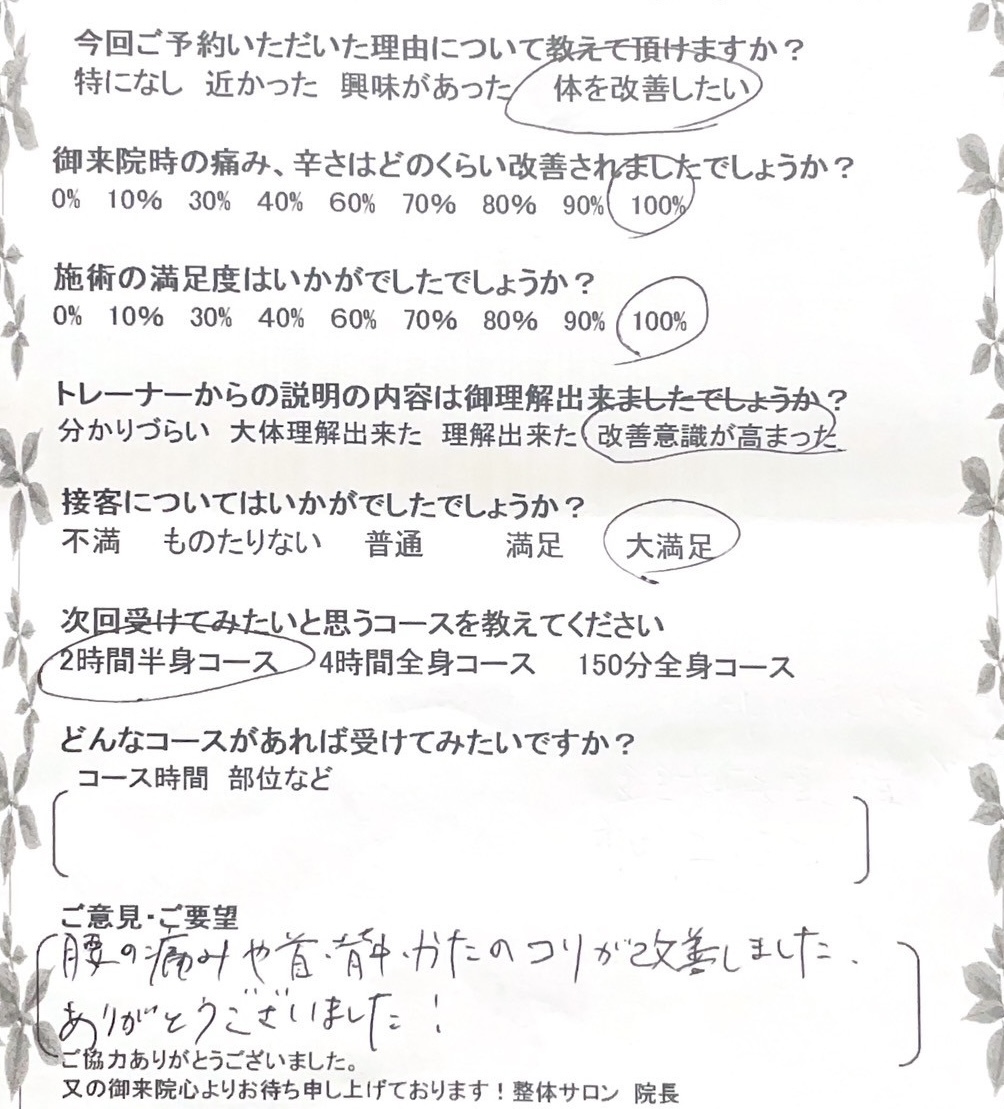 今回ご予約いただいた理由について教えて頂けますか？
特になし 近かった 興味があった 体を改善したい
御来院時の痛み、辛さはどのくらい改善されましたでしょうか？
0% 10% 30% 40% 60% 70% 80% 90% 100%
施術の満足度はいかがでしたでしょうか？
0% 10% 30% 40% 60% 70% 80% 90% 100%
トレーナーからの説明の内容は御理解出来ましたでしょうか？
分かりづらい 大体理解出来た 理解出来た 改善意識が高まった
接客についてはいかがでしたでしょうか？
不満 ものたりない 普通 満足 大満足
次回受けてみたいと思うコースを教えてください
2時間半身コース 4時間全身コース 150分全身コース
どんなコースがあれば受けてみたいですか？
コース時間 部位など
ご意見・ご要望
腰の痛みや首・背中・かたのコリが改善しました.
ありがとうございました！
ご協力ありがとうございました。
又の御来院心よりお待ち申し上げております！整体サロン 院長